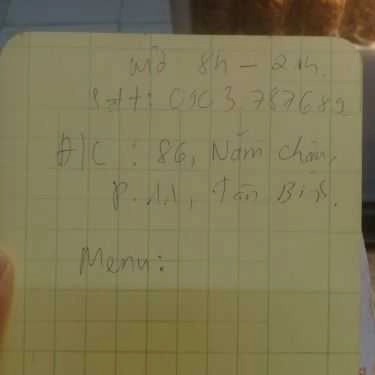 Mở 8h - 21h.
Sđt: 0903.787682
Đ/C : 86, Năm Châu,
P. 11, Tân Bình.
Menu: